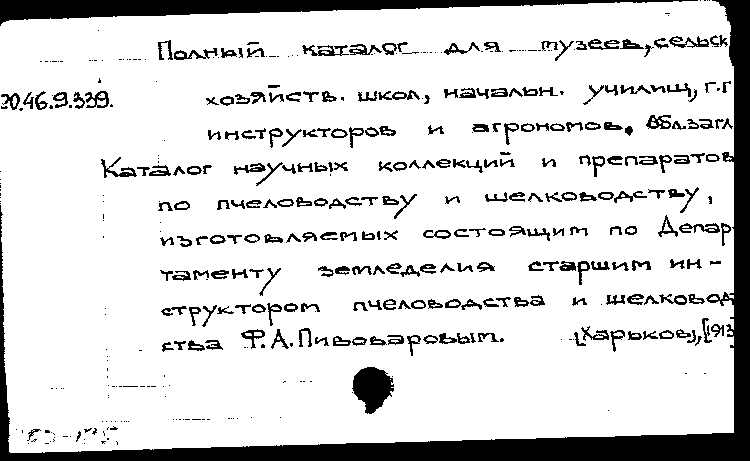 Полный каталог для музеев, сельск
20.46.9.339. хозяйств. школ, начальн. училищ, г.г
инструкторов и агрономов. Обл.загл
Каталог научных коллекций и препаратов
по пчеловодству и шелководству,
изготовляемых состоящим по Депар-
таменту земледелия старшим ин-
структором пчеловодства и шелковод
ства Ф.А.Пивоваровым. [Харьков], [1913